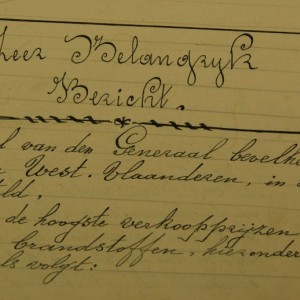 Zeer Belangryk
Bericht.
van den Generaal bevelhe
West-Vlaanderen, in
de hoogste verkoopprijzen
brandstoffen, hieronder
als volgt: